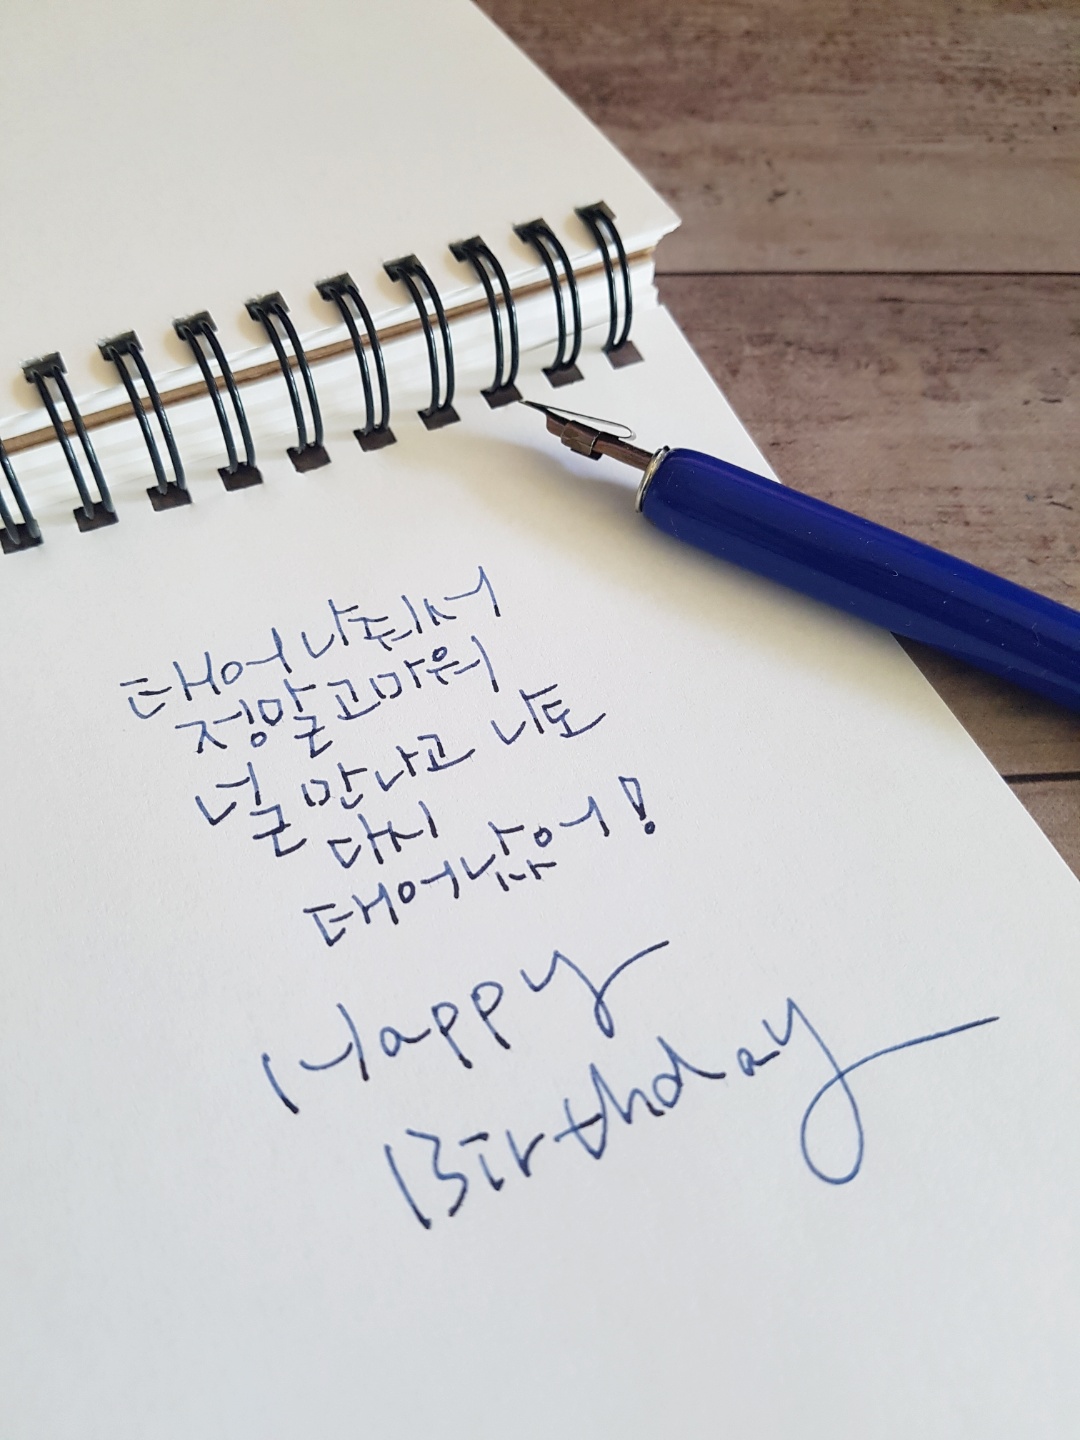 태어나줘서
정말 고마워
널 만나고 나도
다시
태어났어!
Happy
Birthday